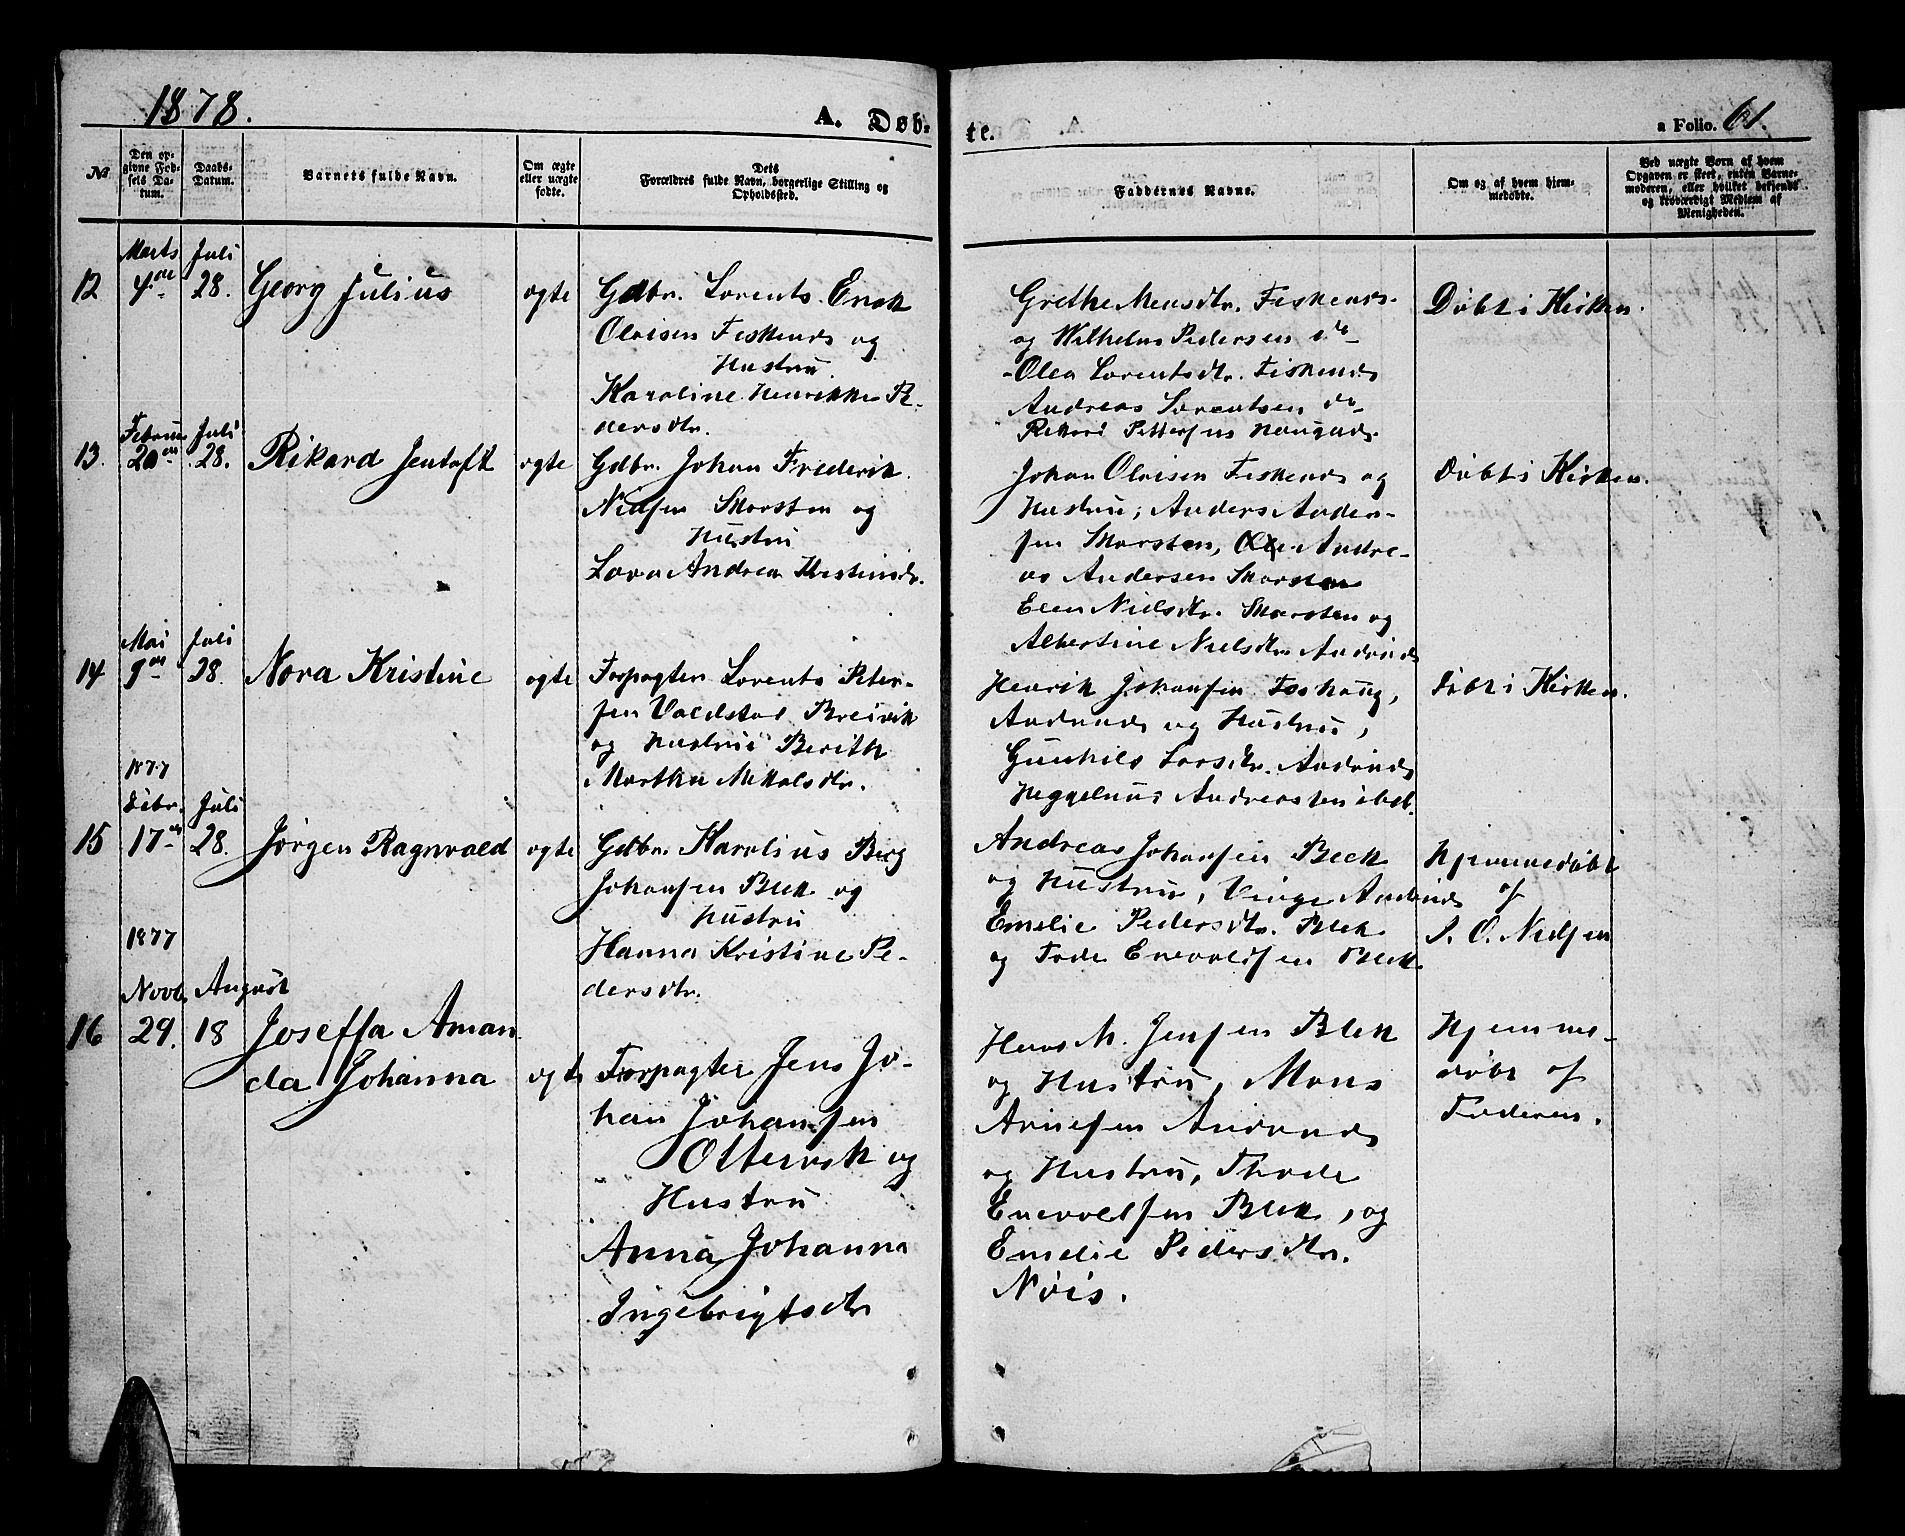 1878.
A. Døb-
te.
a Folio. 61.
No
Den op-
givne Fød-
sels Da-
tum.
Daabs-
Datum.
Barnets fulde Navn.
Om ægte
eller uægte
fødte.
Dets
Forældres fulde Navn, borgerlige Stilling og
Opholdssted.
Faddernes Navne.
Om og af hvem hjem-
medøbte.
Ved uægte Børn af hvem
Opgaven er skeet, enten Barne-
moderen, eller hvilket bekjendt
og troværdigt Medlem af
Menigheden.
Marts Juli
12 4de 28. Georg Julius ægte Gdbr. Lorents Erik
Olaisen Feskenes og
Hustru
Karoline Henrikke Pe-
dersdtr.
Grethe Mensdtr. Feskenes
og Wilhelm Pedersen do
Olea Lorentsdtr. Feskenes
Andreas Lorentsen do
Rikard Pettersen
Døbt i Kirken.
Februar Juli
13. 20en 28. Rikard Jentoft ægte Gdbr. Johan Frederik
Nielsen Skorsten og
Hustru
Andrea
Johan Olaisen Feskenes og
Hustru, Anders Ander-
sen Skarsten, Andre-
as Andersen Skarsten
Elen Nielsdtr. Skarsten og
Albertine Nielsdtr.
Døbt i Kirken.
Mai Juli
14 9de 28. Nora Kristine ægte Forpagter Lorents Peter-
sen Valdstad Breivik
og Hustru Berith
Martha Nikolsdtr.
Henrik Johansen
og Hustru,
Gunhild Larsdtr.
ibd.
Døbt i Kirken.
1877
Debr. Juli
15 17en 28. Jørgen Ragnvald ægte Gdbr. Karolius Berg
Johansen Blek og
Hustru
Hanna Kristine Pe-
dersdtr.
Andreas Johansen Blek
og Hustru,
Emelie Pedersdtr. Blek
og Tode Enevoldsen Blek
Hjemmedøbt
af
P. O. Nielsen
1877
Novb. August
16 29. 18 Joseffa Aman
da Johanna ægte Forpagter Jens Jo-
han Johansen
Ottervik og
Hustru
Anna Johanna
Ingebrigtsdtr
Hans M. Jensen Blek
og Hustru, Mons
Arnesen
og Hustru, Thode
Enevoldsen Blek, og
Emelie Pedersdtr.
Nøis.
Hjemme-
døbt af
Faderen.